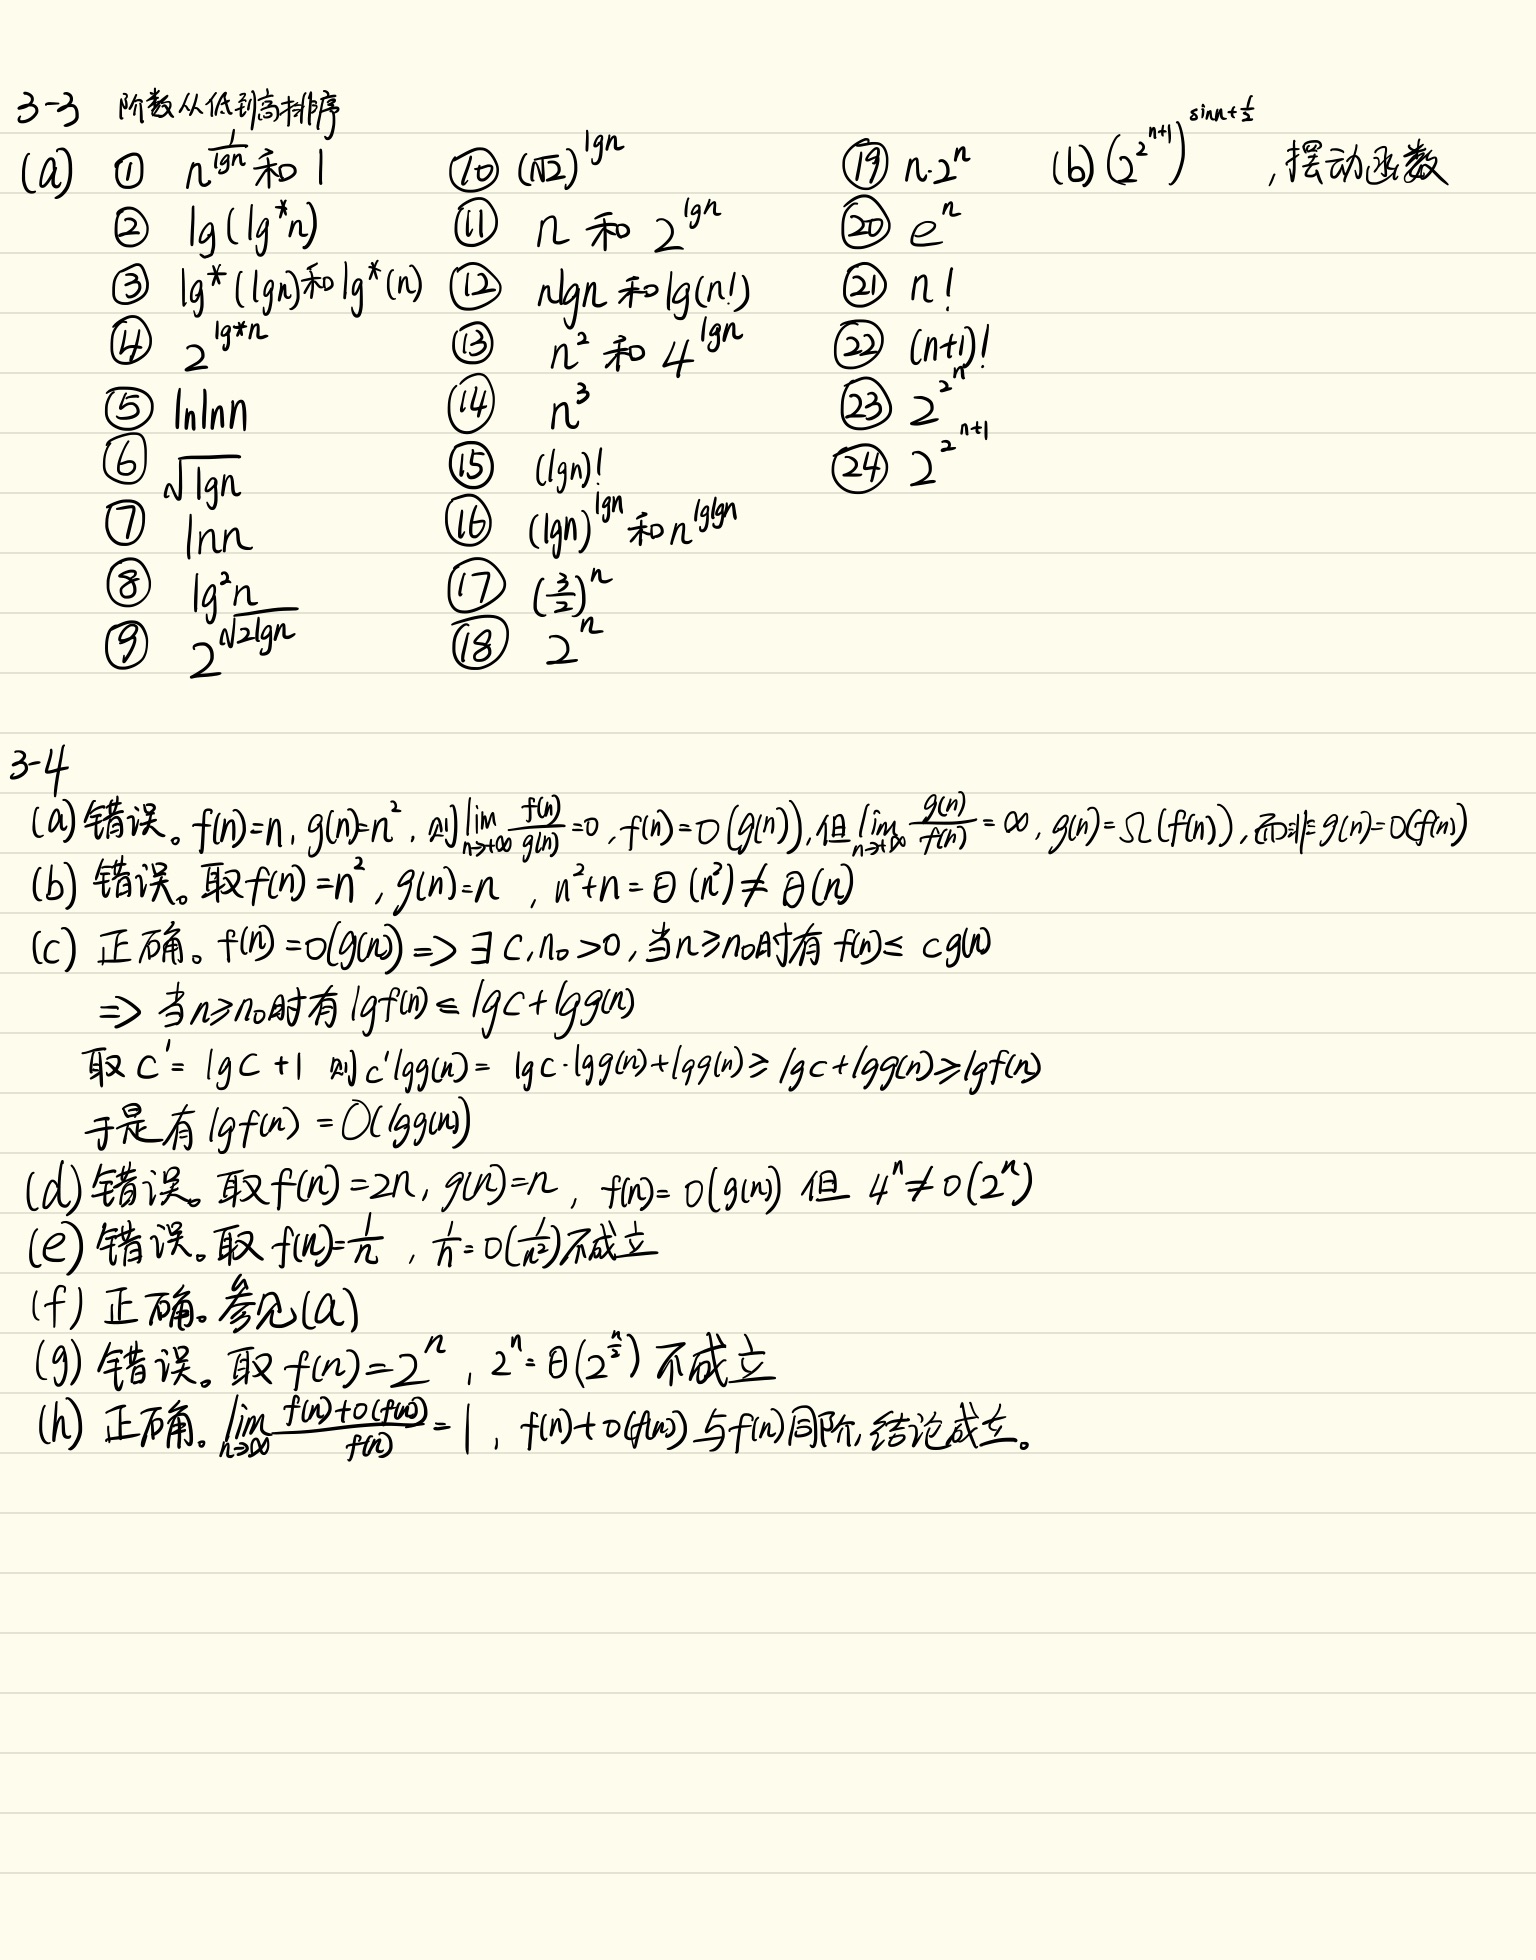 3-3 阶数从低到高排序
(a) ① n^{1/lgn} 和 1
② lg(lg*n)
③ lg*(lgn)和lg*(n)
④ 2^{lg*n}
⑤ lnlnn
⑥ √lgn
⑦ lnn
⑧ lg²n
⑨ 2^{√2lgn}
⑩ (√2)^{lgn}
⑪ n 和 2^{lgn}
⑫ nlgn 和 lg(n!)
⑬ n² 和 4^{lgn}
⑭ n³
⑮ (lgn)!
⑯ (lgn)^{lgn} 和 n^{lglgn}
⑰ (3/2)^n
⑱ 2^n
⑲ n·2^n
⑳ e^n
㉑ n!
㉒ (n+1)!
㉓ 2^{2^n}
㉔ 2^{2^{n+1}}
(b) (2^{2^{n+1}})^{sinn+1/2} ,摆动函数
3-4
(a) 错误。f(n)=n, g(n)=n², 则 lim_{n→+∞} f(n)/g(n) =0, f(n)=O(g(n)),但 lim_{n→+∞} g(n)/f(n) = ∞, g(n)=Ω(f(n)),而非g(n)=O(f(n))
(b) 错误。取f(n)=n², g(n)=n , n²+n=θ(n²)≠θ(n)
(c) 正确。f(n)=O(g(n)) => ∃ c,n₀>0,当n≥n₀时有 f(n)≤ cg(n)
=> 当n≥n₀时有 lgf(n) ≤ lgc+lgg(n)
取 c'= lgc+1 则 c'lgg(n)= lgc·lgg(n)+lgg(n) ≥ lgc+lgg(n)≥lgf(n)
于是有 lgf(n) =O(lgg(n))
(d) 错误。取f(n)=2n, g(n)=n, f(n)=O(g(n)) 但 4^n≠O(2^n)
(e) 错误。取 f(n)=1/n , 1/n=O(1/n²)不成立
(f) 正确。参见(a)
(g) 错误。取 f(n)=2^n , 2^n=θ(2^{n/2}) 不成立
(h) 正确。lim_{n→∞} f(n)+o(f(n))/f(n) = 1 , f(n)+o(f(n))与f(n)同阶,结论成立。